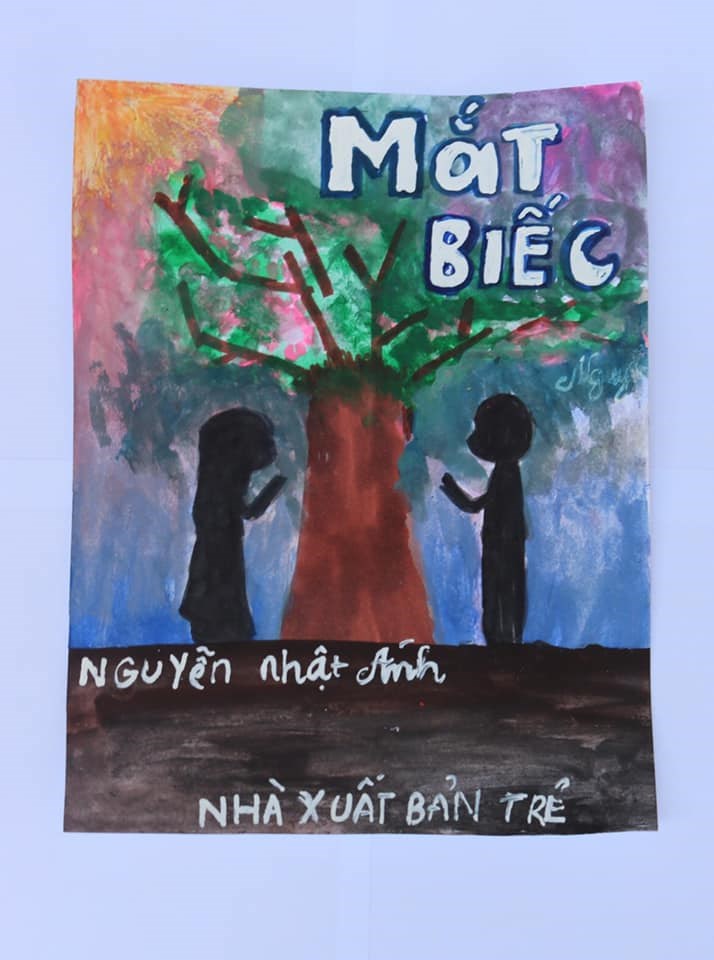 MắT
BIẾC
NGUYễn nhật Ánh
NHÀ XUẤT BẢN TRẺ